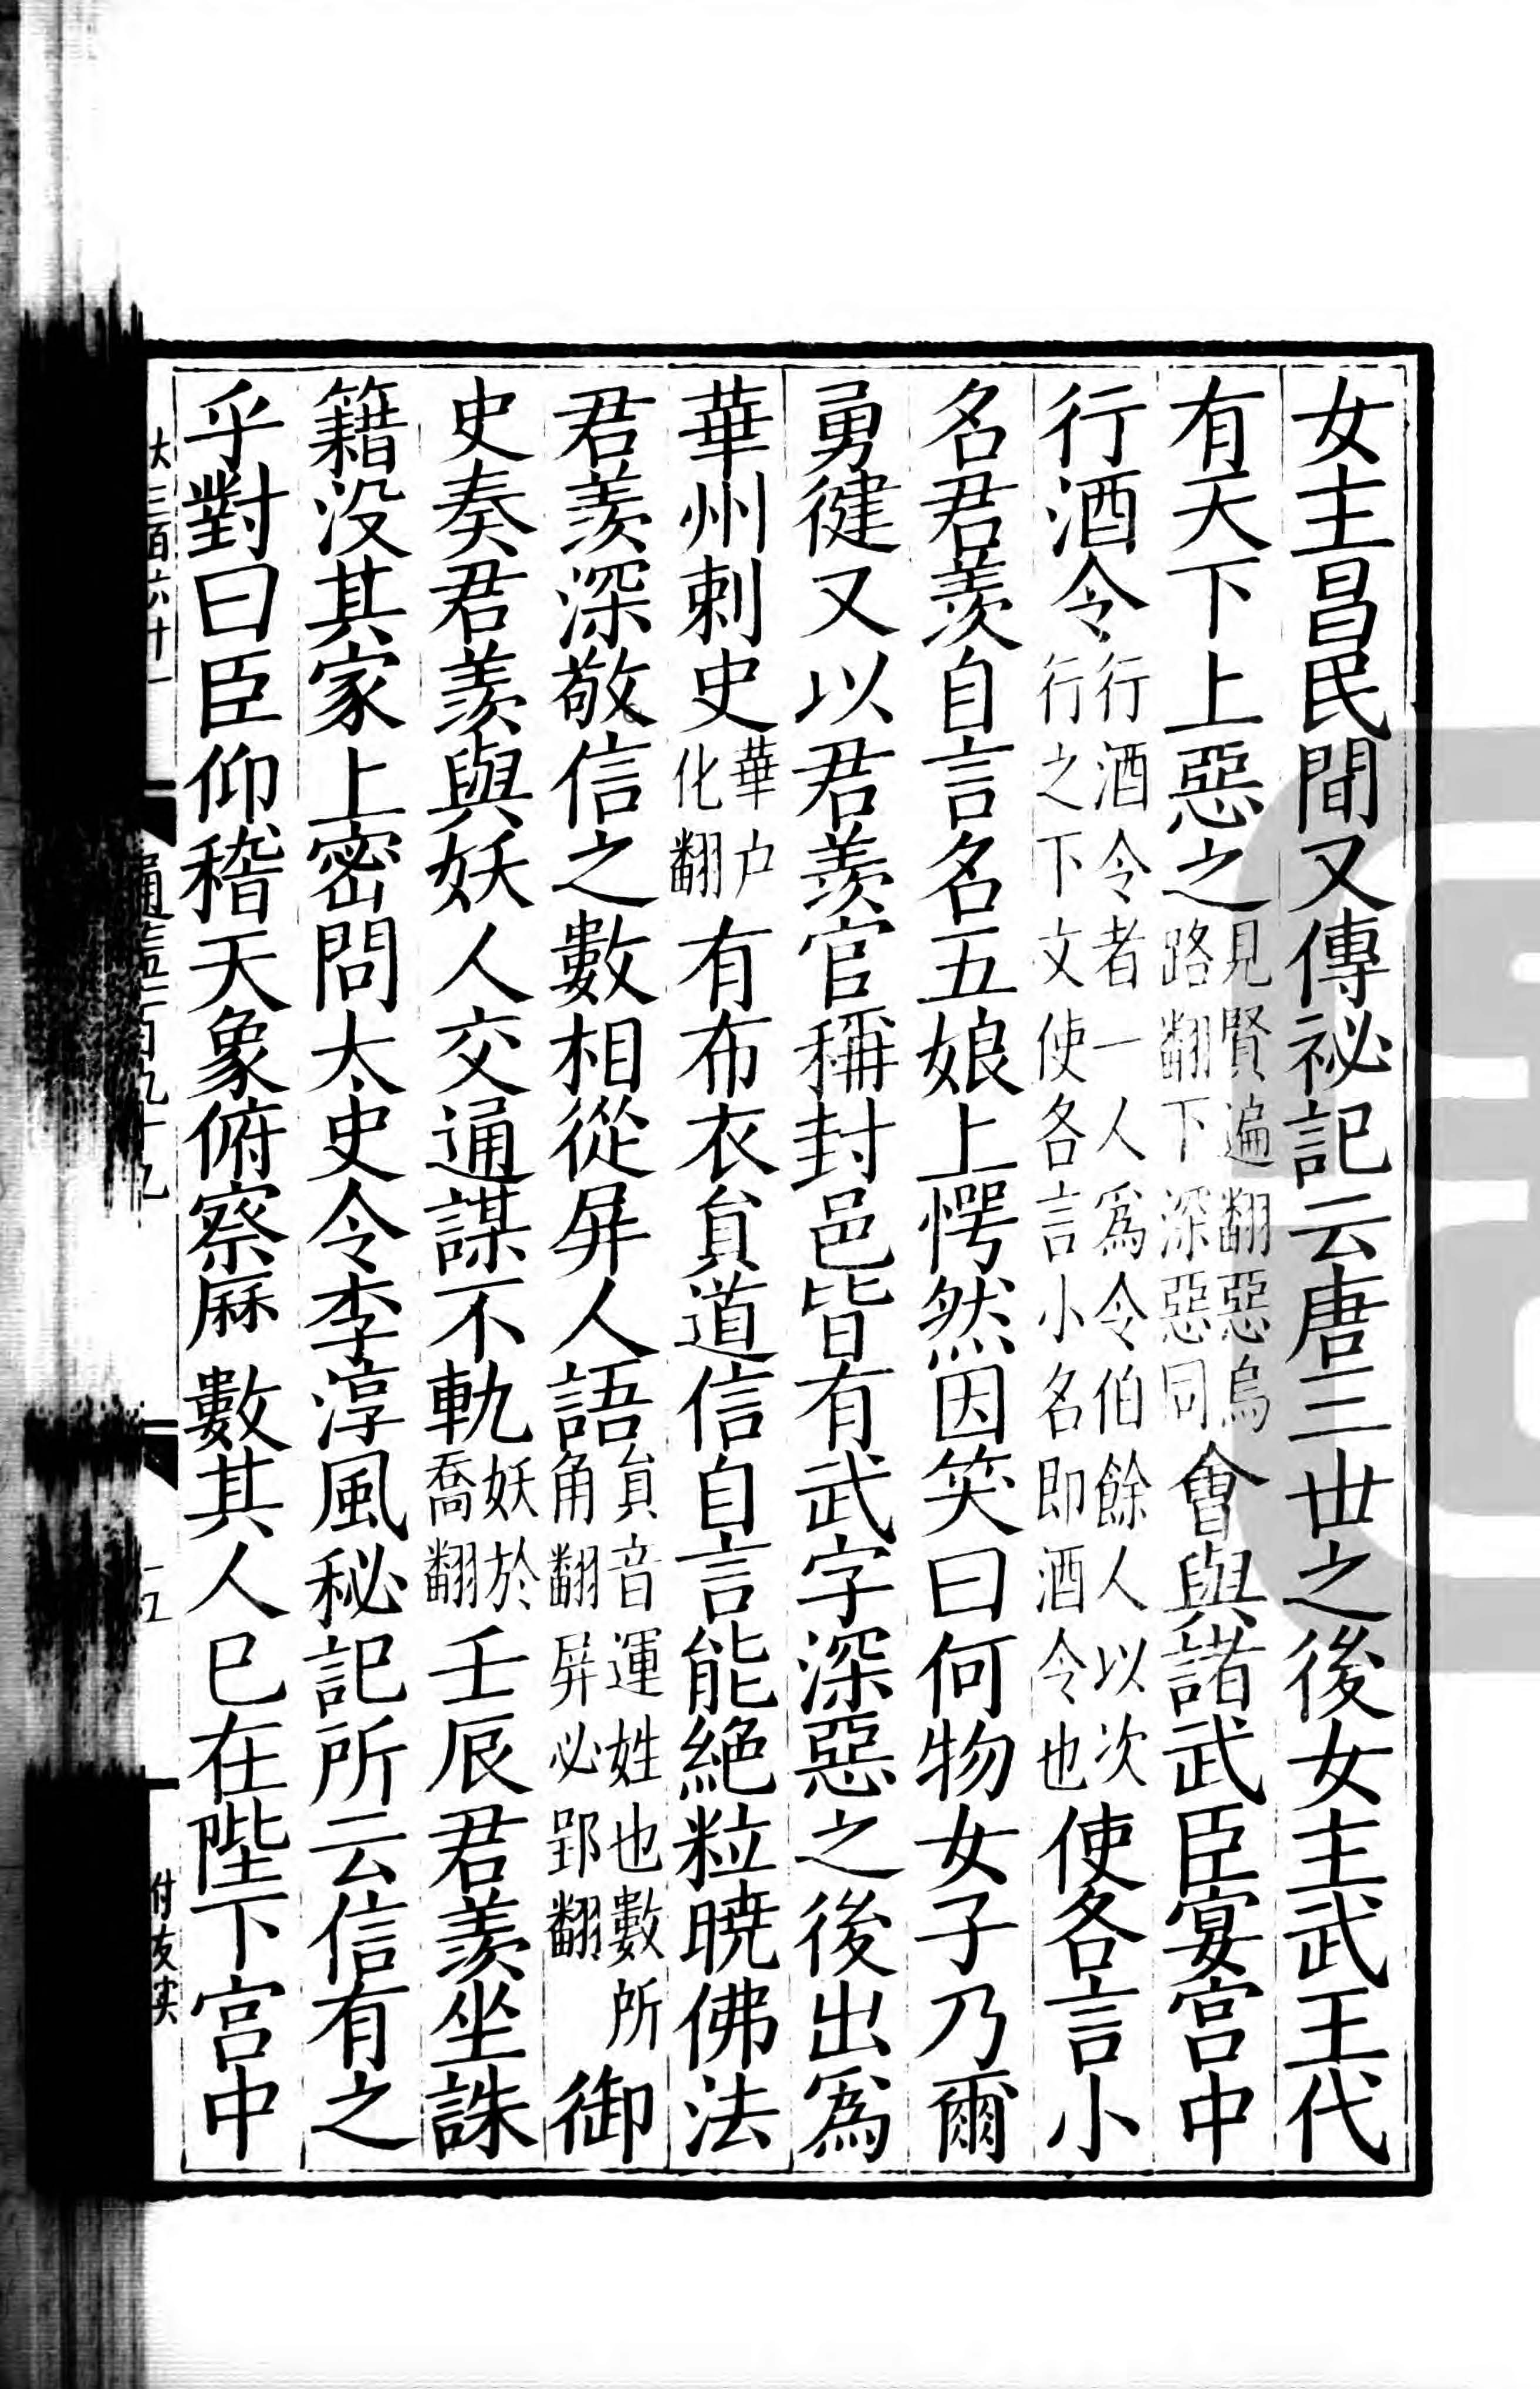 女主昌民間又傳祕記云唐三世之後女主武王代
有天下上惡之見賢遍翻惡烏路翻下深惡同會與諸武臣宴宮中
行酒令行酒令者一人爲令伯餘人以次行之下文使各言小名即酒令也使各言小
名君羨自言名五娘上愕然因笑曰何物女子乃爾
勇健又以君羨官稱封邑皆有武字深惡之後出爲
華州刺史華户化翻有布衣貟道信自言能絕粒曉佛法
君羨深敬信之數相從屏人語貟音運姓也數所角翻屏必郢翻御
史奏君羨與妖人交通謀不軌妖於喬翻壬辰君羨坐誅
籍没其家上密問太史令李淳風秘記所云信有之
乎對曰臣仰稽天象俯察厤數其人已在陛下宫中
大三百六十一
付友实